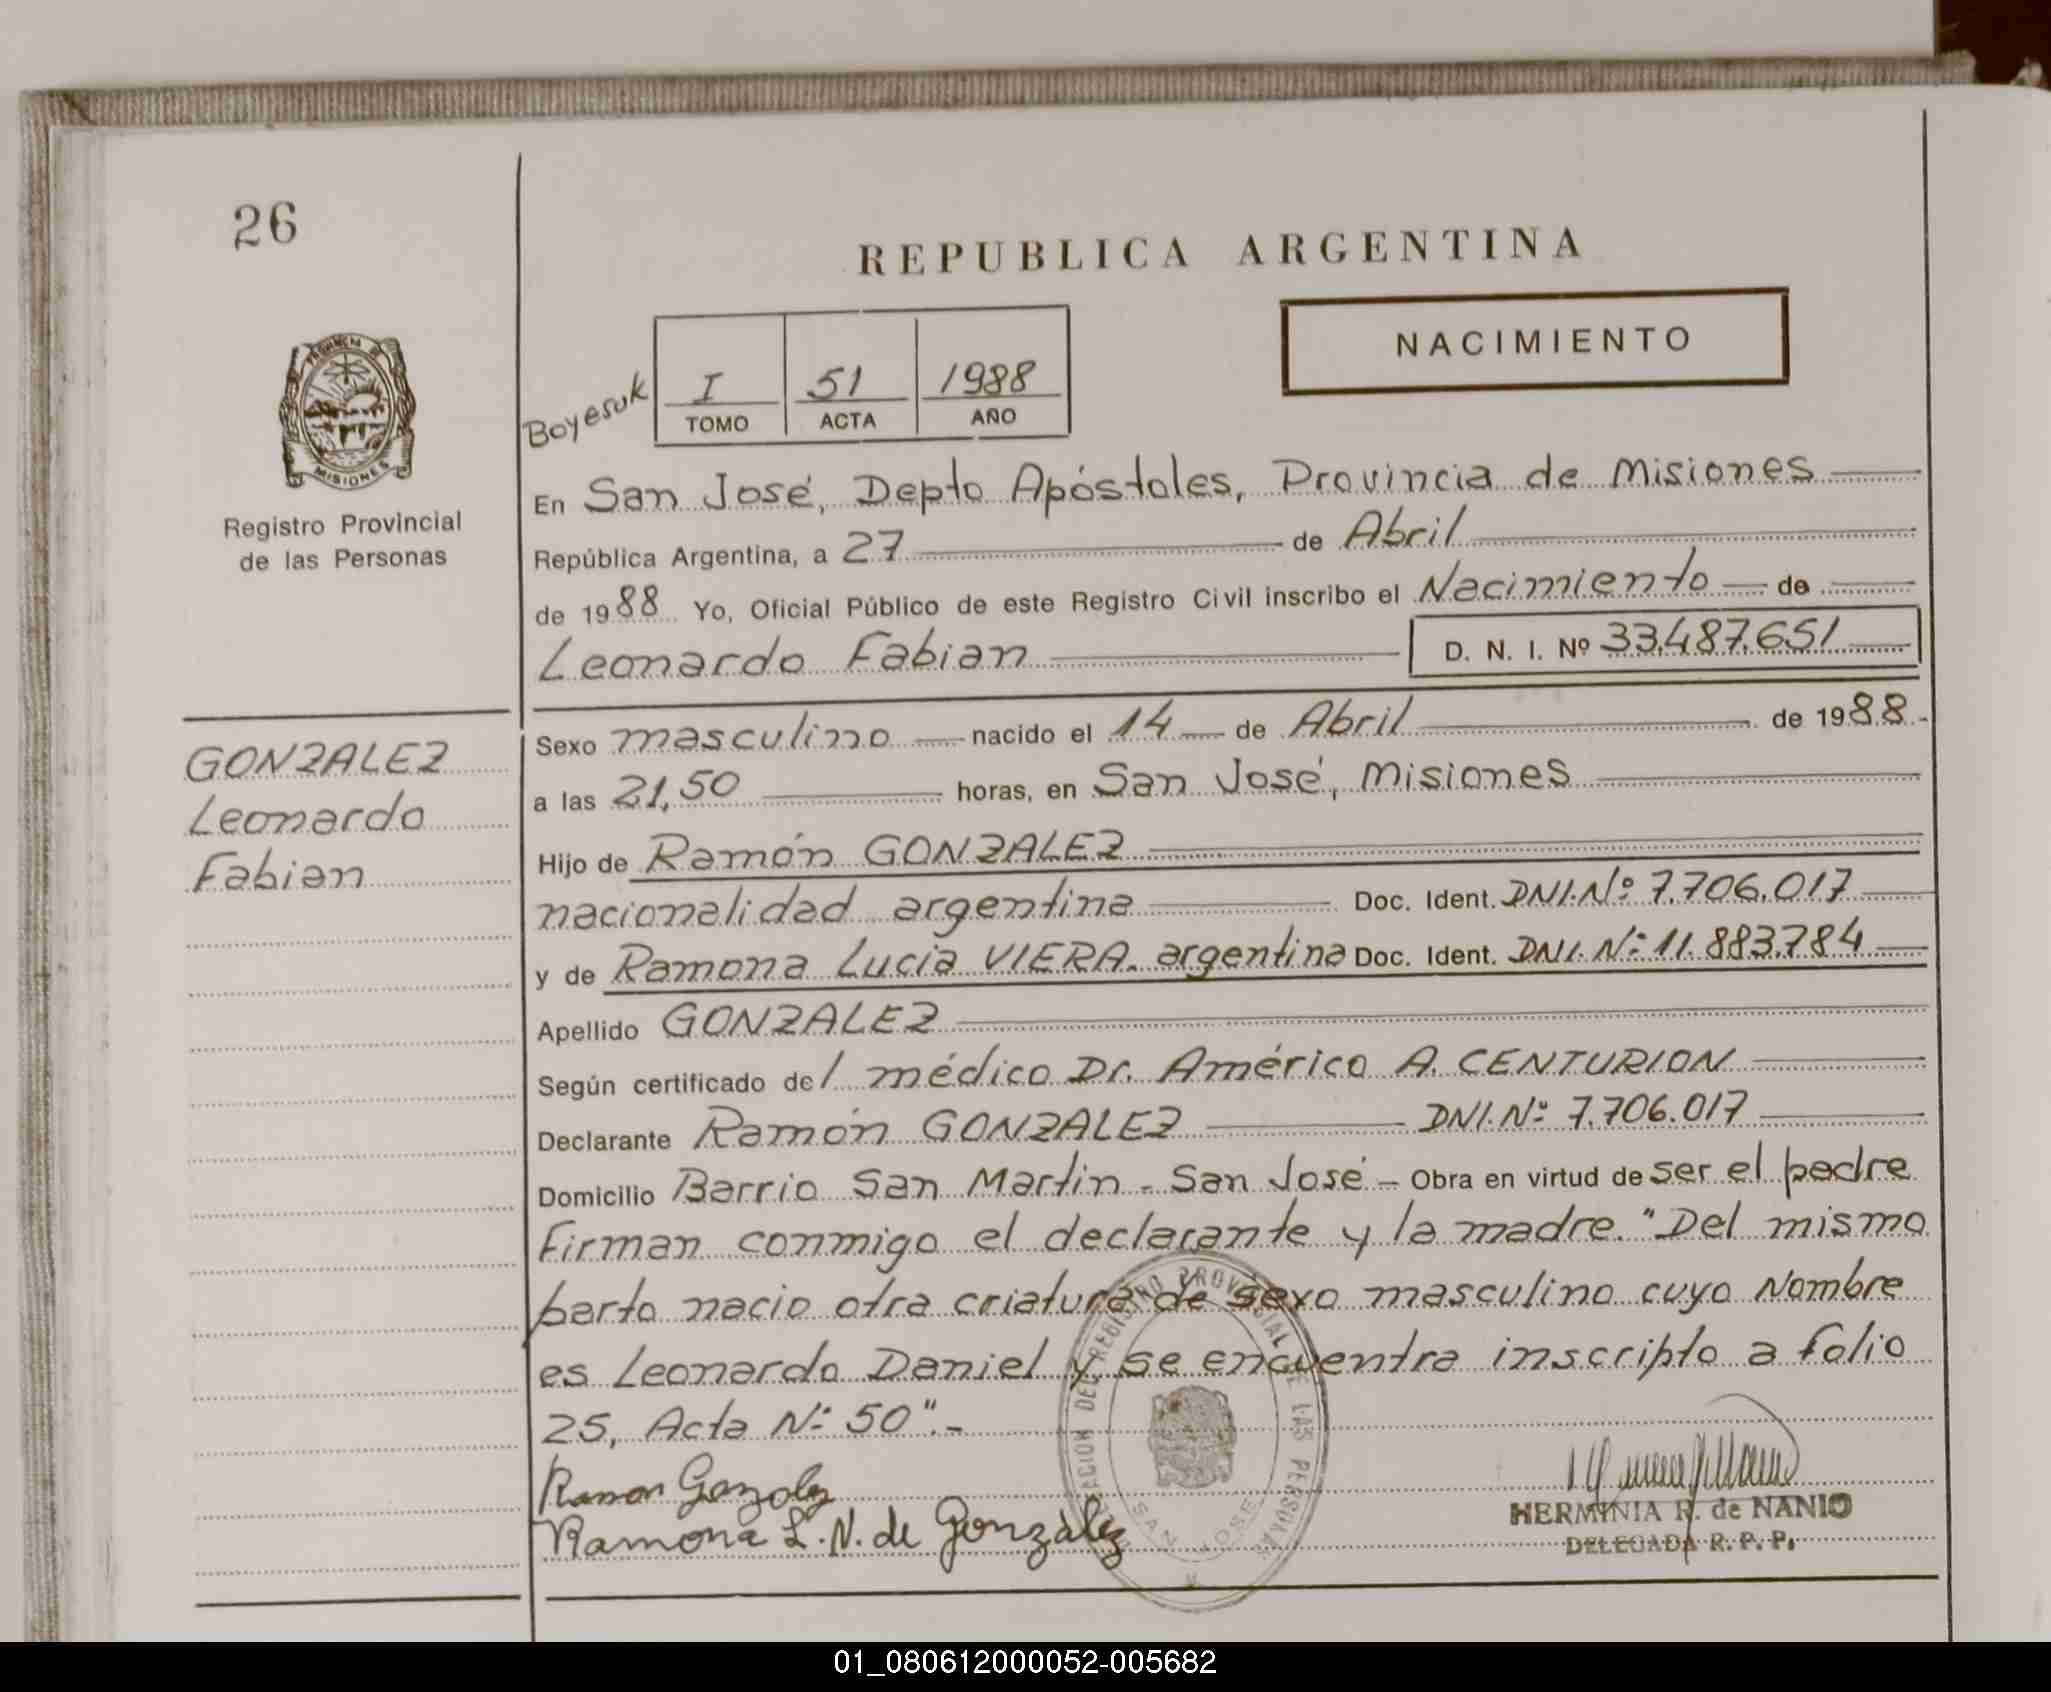 26
REPUBLICA ARGENTINA
NACIMIENTO
Boyesuk
I 51 1988
TOMO ACTA AÑO
PROVINCIA DE
MISIONES
Registro Provincial
de las Personas
En San José, Depto Apóstoles, Provincia de Misiones
República Argentina, a 27 de Abril
de 1988 Yo, Oficial Público de este Registro Civil inscribo el Nacimiento de
Leonardo Fabian D. N. I. Nº 33.487.651
GONZALEZ
Leonardo
Fabian
Sexo masculino nacido el 14 de Abril de 1988.-
a las 21,50 horas, en San José, Misiones
Hijo de Ramón GONZALEZ
nacionalidad argentina Doc. Ident. DNI.Nº 7.706.017
y de Ramona Lucia VIERA. argentina Doc. Ident. DNI.Nº 11.883.784
Apellido GONZALEZ
Según certificado del médico Dr. Américo A. CENTURION
Declarante Ramón GONZALEZ DNI.Nº 7.706.017
Domicilio Barrio San Martin - San José - Obra en virtud de ser el padre
Firman conmigo el declarante y la madre. "Del mismo
parto nacio otra criatura de sexo masculino cuyo Nombre
es Leonardo Daniel y se encuentra inscripto a folio
25, Acta Nº 50".-
Ramon Gonzalez
Ramona L. N. de Gonzàlez
DEL REGISTRO PROVINCIAL DE LAS PERSONAS
SAN JOSE
HERMINIA R. de NANIO
DELEGADA R. P. P.
01_080612000052-005682